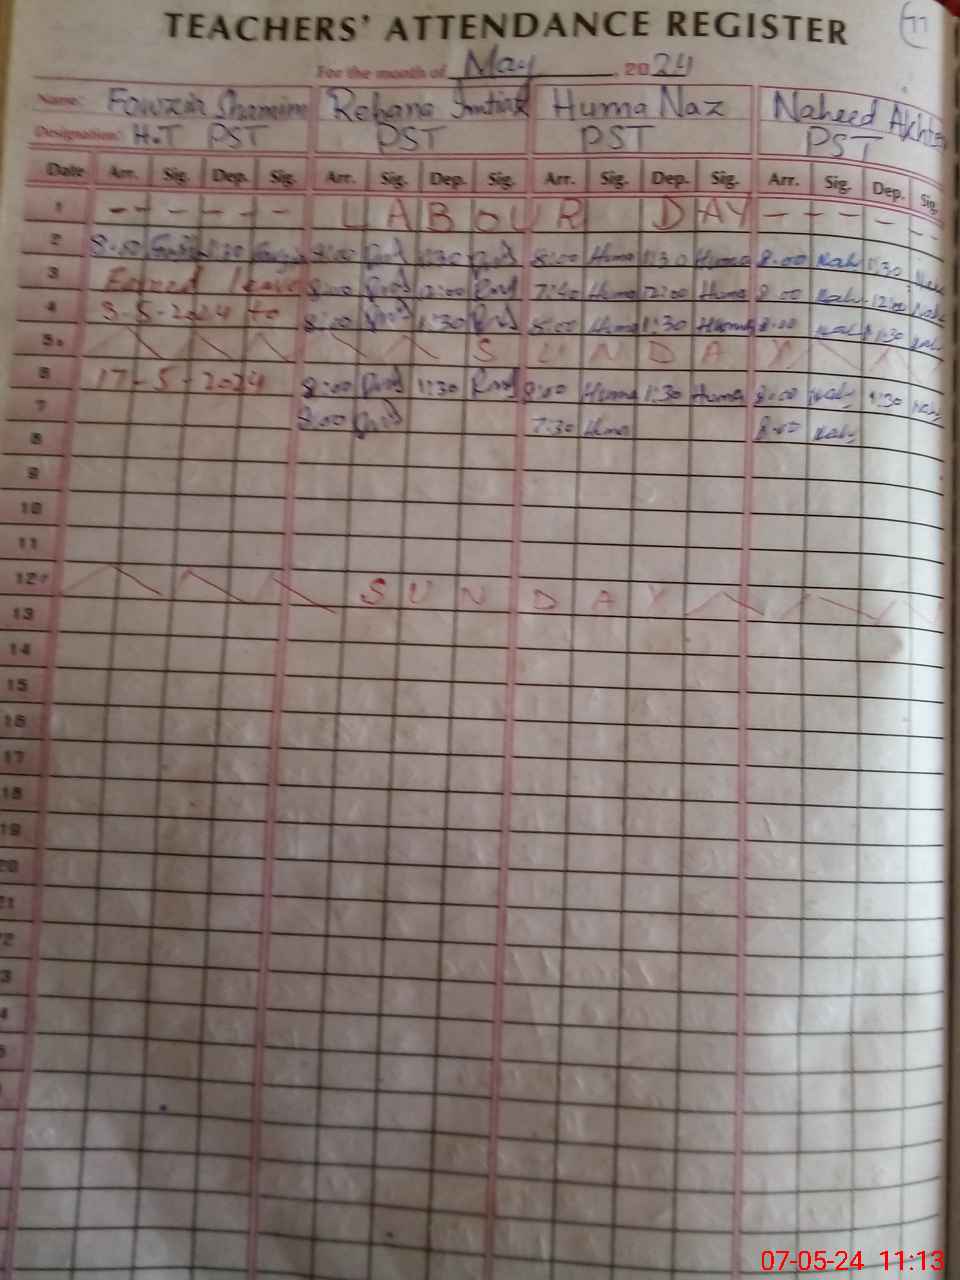 TEACHERS' ATTENDANCE REGISTER
77
For the month of May, 2024
Name: Fowzia Shamim Rehana Imtiaz Huma Naz Naheed Akhter
Designation: H.T PST PST PST PST
Date Arr. Sig. Dep. Sig. Arr. Sig. Dep. Sig. Arr. Sig. Dep. Sig. Arr. Sig. Dep. Sig.
1 - - - - - - LABOUR DAY - - - - - -
2 1:30 8:00 1:30 8:00 Huma 1:30 Huma 8.00 Nah 1:30
3 Earned leave 8:00 12:00 7:40 Huma 12:00 Huma 8.00 Nah 12:00 Nah
4 3-5-2024 to 8:00 1:30 8:00 Huma 1:30 Huma 8.00 Nah 1:30 Nah
5 SUNDAY
6 17-5-2024 8:00 1:30 8:00 Huma 1:30 Huma 8.00 Nah 1:30 Nah
7 8:00 7:30 Huma 8.00 Nah
8
9
10
11
12 SUNDAY
13
14
15
16
17
18
19
20
21
22
23
07-05-24 11:13